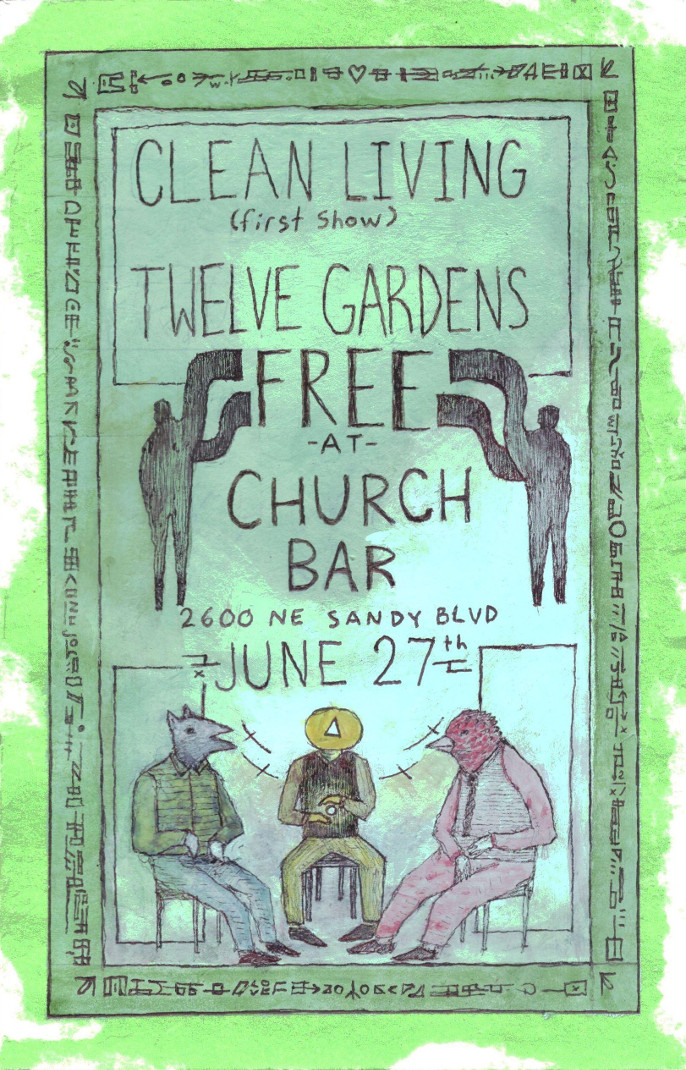 CLEAN LIVING
(first Show)
TWELVE GARDENS
FREE
-AT-
CHURCH
BAR
2600 NE SANDY BLVD
JUNE 27th